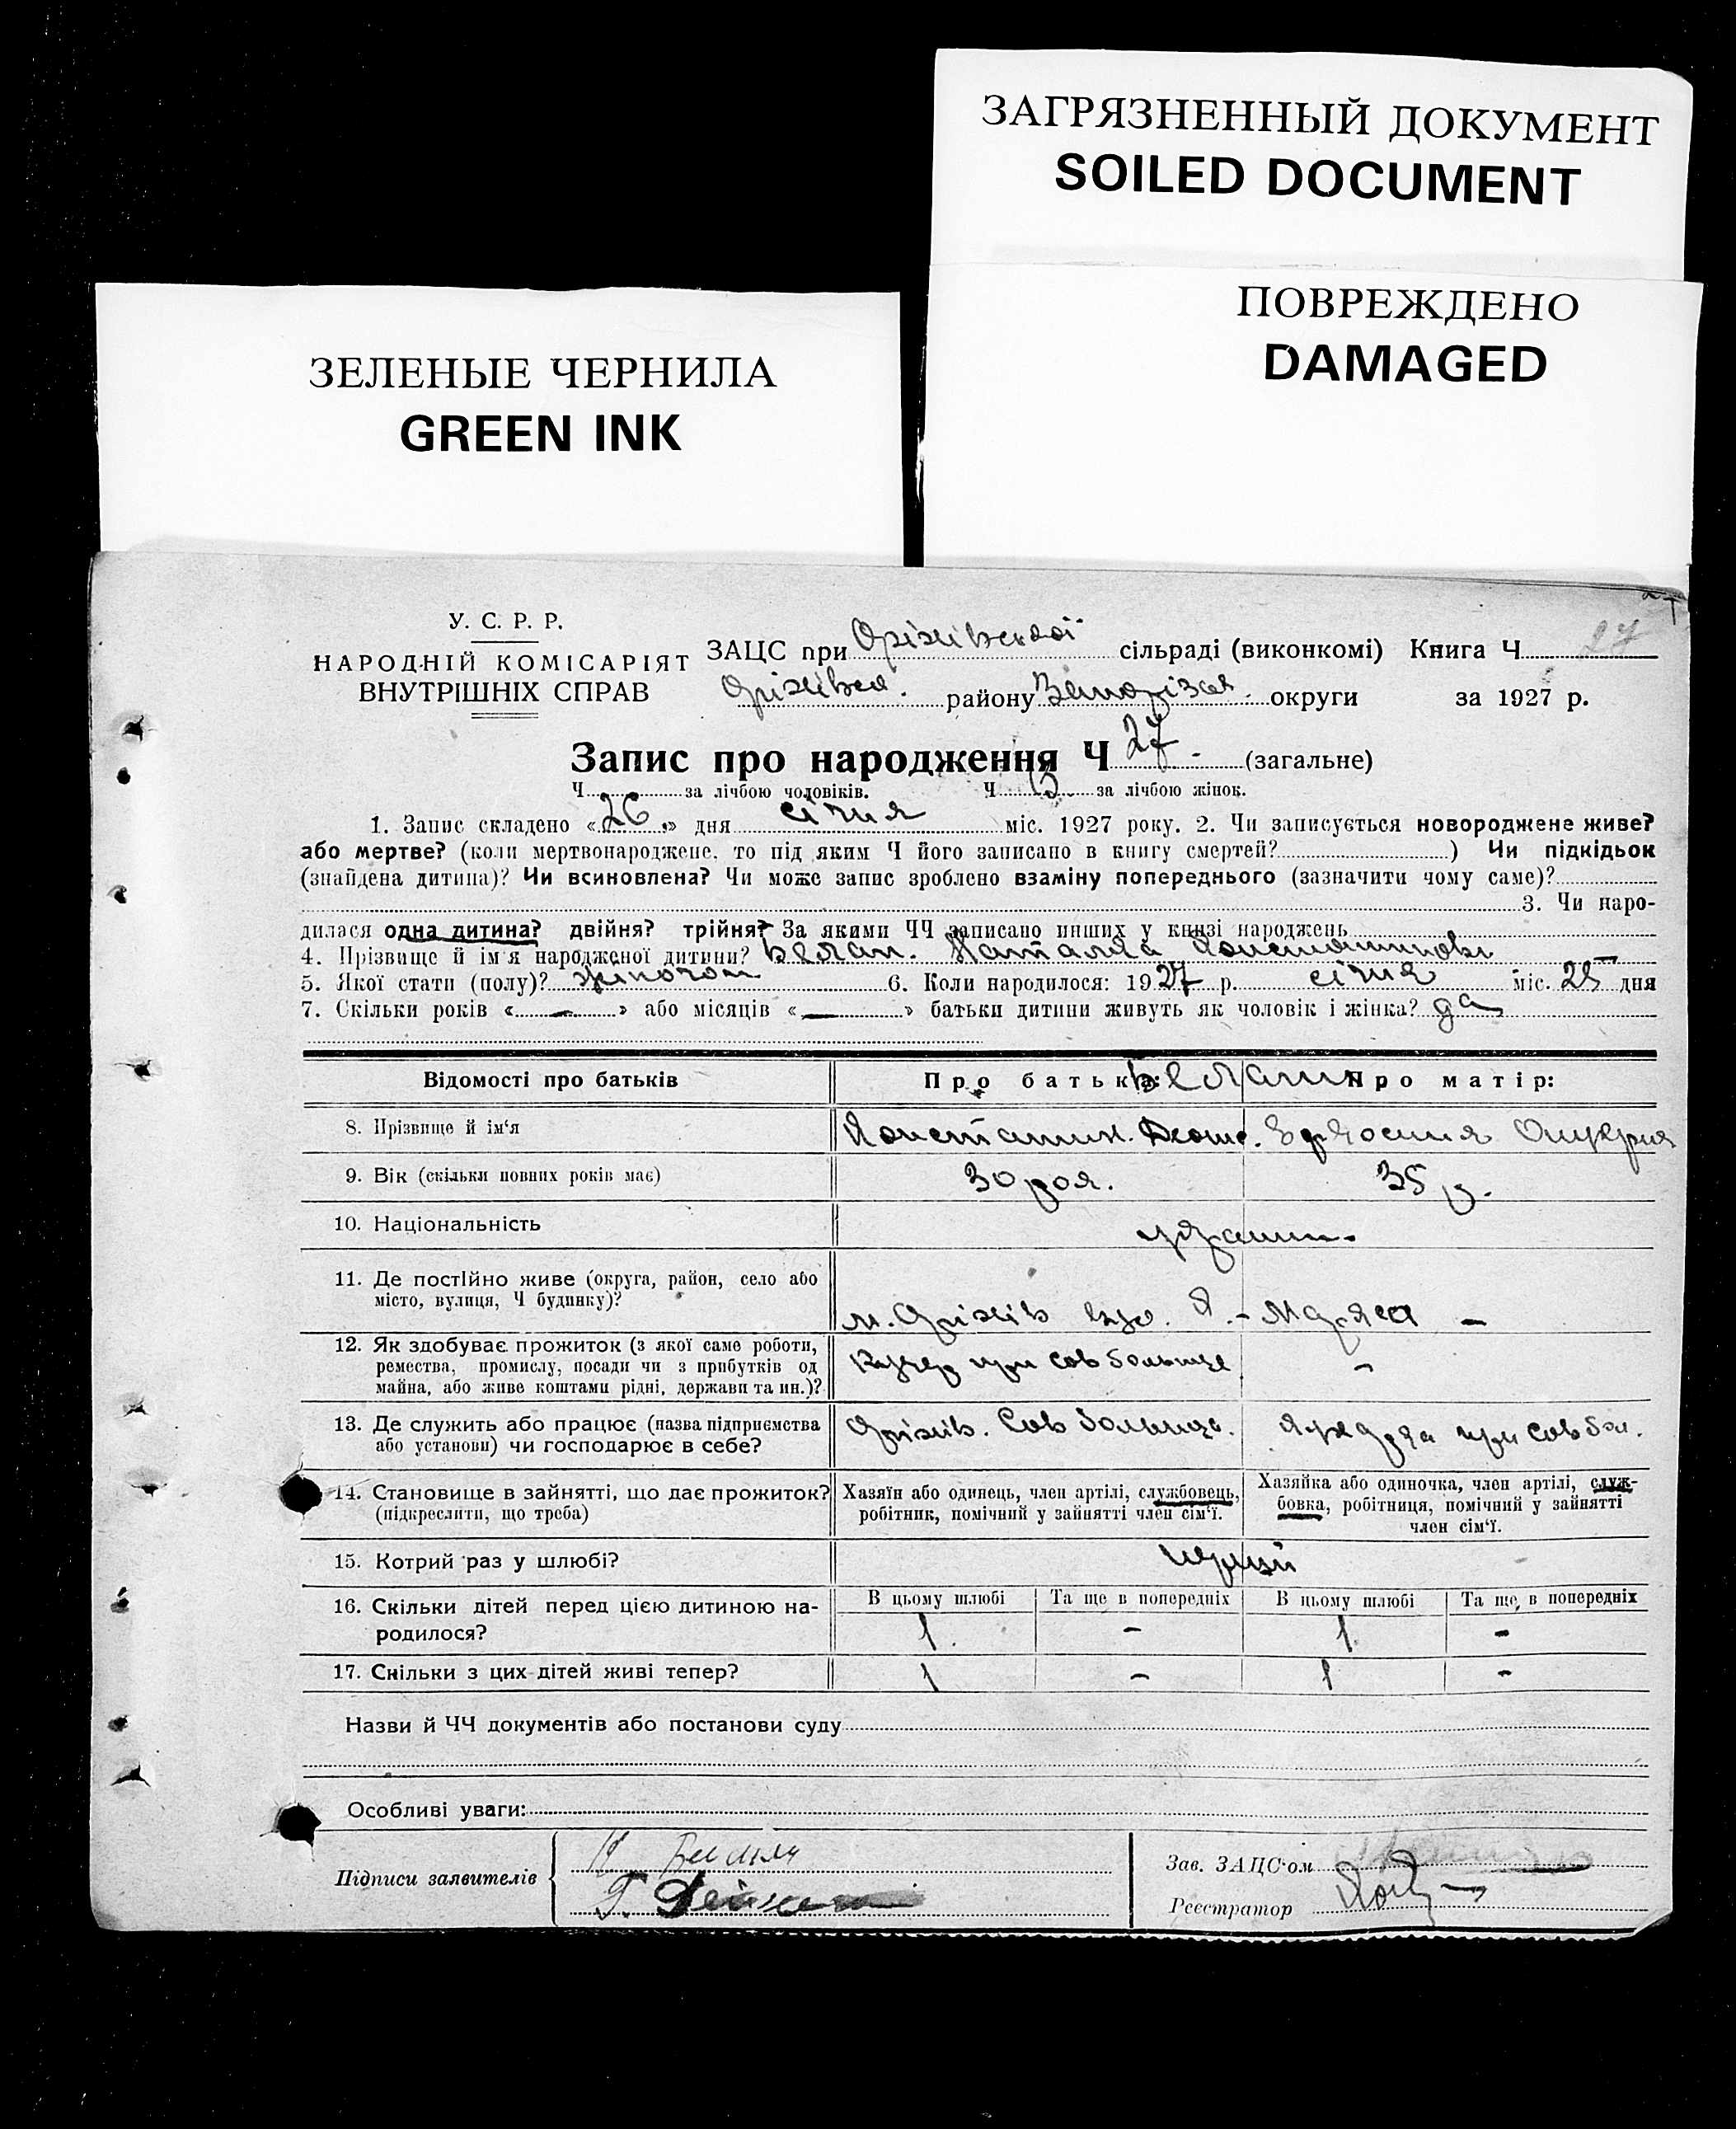 ЗАГРЯЗНЕННЫЙ ДОКУМЕНТ
SOILED DOCUMENT
ПОВРЕЖДЕНО
DAMAGED
ЗЕЛЕНЫЕ ЧЕРНИЛА
GREEN INK
У. С. Р. Р.
НАРОДНІЙ КОМІСАРІЯТ
ВНУТРІШНІХ СПРАВ
ЗАЦС при Оріхівської сільраді (виконкомі) Книга Ч 27
Оріхівськ. району Запорізьк. округи за 1927 р.
Запис про народження Ч 27 - (загальне)
Ч за лічбою чоловіків. Ч 13 за лічбою жінок.
1. Запис складено «26» дня січня міс. 1927 року. 2. Чи записується новороджене живе?
або мертве? (коли мертвонароджене, то під яким Ч його записано в книгу смертей? ) Чи підкідьок
(знайдена дитина)? Чи всиновлена? Чи може запис зроблено взаміну попереднього (зазначити чому саме)?
3. Чи наро-
дилася одна дитина? двійня? трійня? За якими ЧЧ записано инших у книзі народжень
4. Прізвище й ім'я народженої дитини? Белан. Наталя Константинові
5. Якої стати (полу)? жіночої 6. Коли народилося: 1927 р. січня міс. 25 дня
7. Скільки років «—» або місяців «—» батьки дитини живуть як чоловік і жінка? да
Відомості про батьків Про батька: Белани Про матір:
8. Прізвище й ім'я Константин. Єфросинія
9. Вік (скільки повних років має) 30 рок. 35 р.
10. Національність україн.
11. Де постійно живе (округа, район, село або
місто, вулиця, Ч будинку)? м. Оріхів вул. К.-Маркса —
12. Як здобуває прожиток (з якої саме роботи,
ремества, промислу, посади чи з прибутків од
майна, або живе коштами рідні, держави та ин.)? Кучер при сов больнице -
13. Де служить або працює (назва підприємства
або установи) чи господарює в себе? Оріхів. Сов больниця. при сов бол.
14. Становище в зайнятті, що дає прожиток?
(підкреслити, що треба)
Хазяїн або одинець, член артілі, службовець,
робітник, помічний у зайнятті член сім'ї.
Хазяйка або одиночка, член артілі, служ-
бовка, робітниця, помічний у зайнятті
член сім'ї.
15. Котрий раз у шлюбі? перший
16. Скільки дітей перед цією дитиною на-
родилося?
В цьому шлюбі Та ще в попередніх В цьому шлюбі Та ще в попередніх
1. - 1 -
17. Скільки з цих дітей живі тепер? 1 - 1 -
Назви й ЧЧ документів або постанови суду
Особливі уваги:
Підписи заявителів
Зав. ЗАЦС'ом
Реєстратор